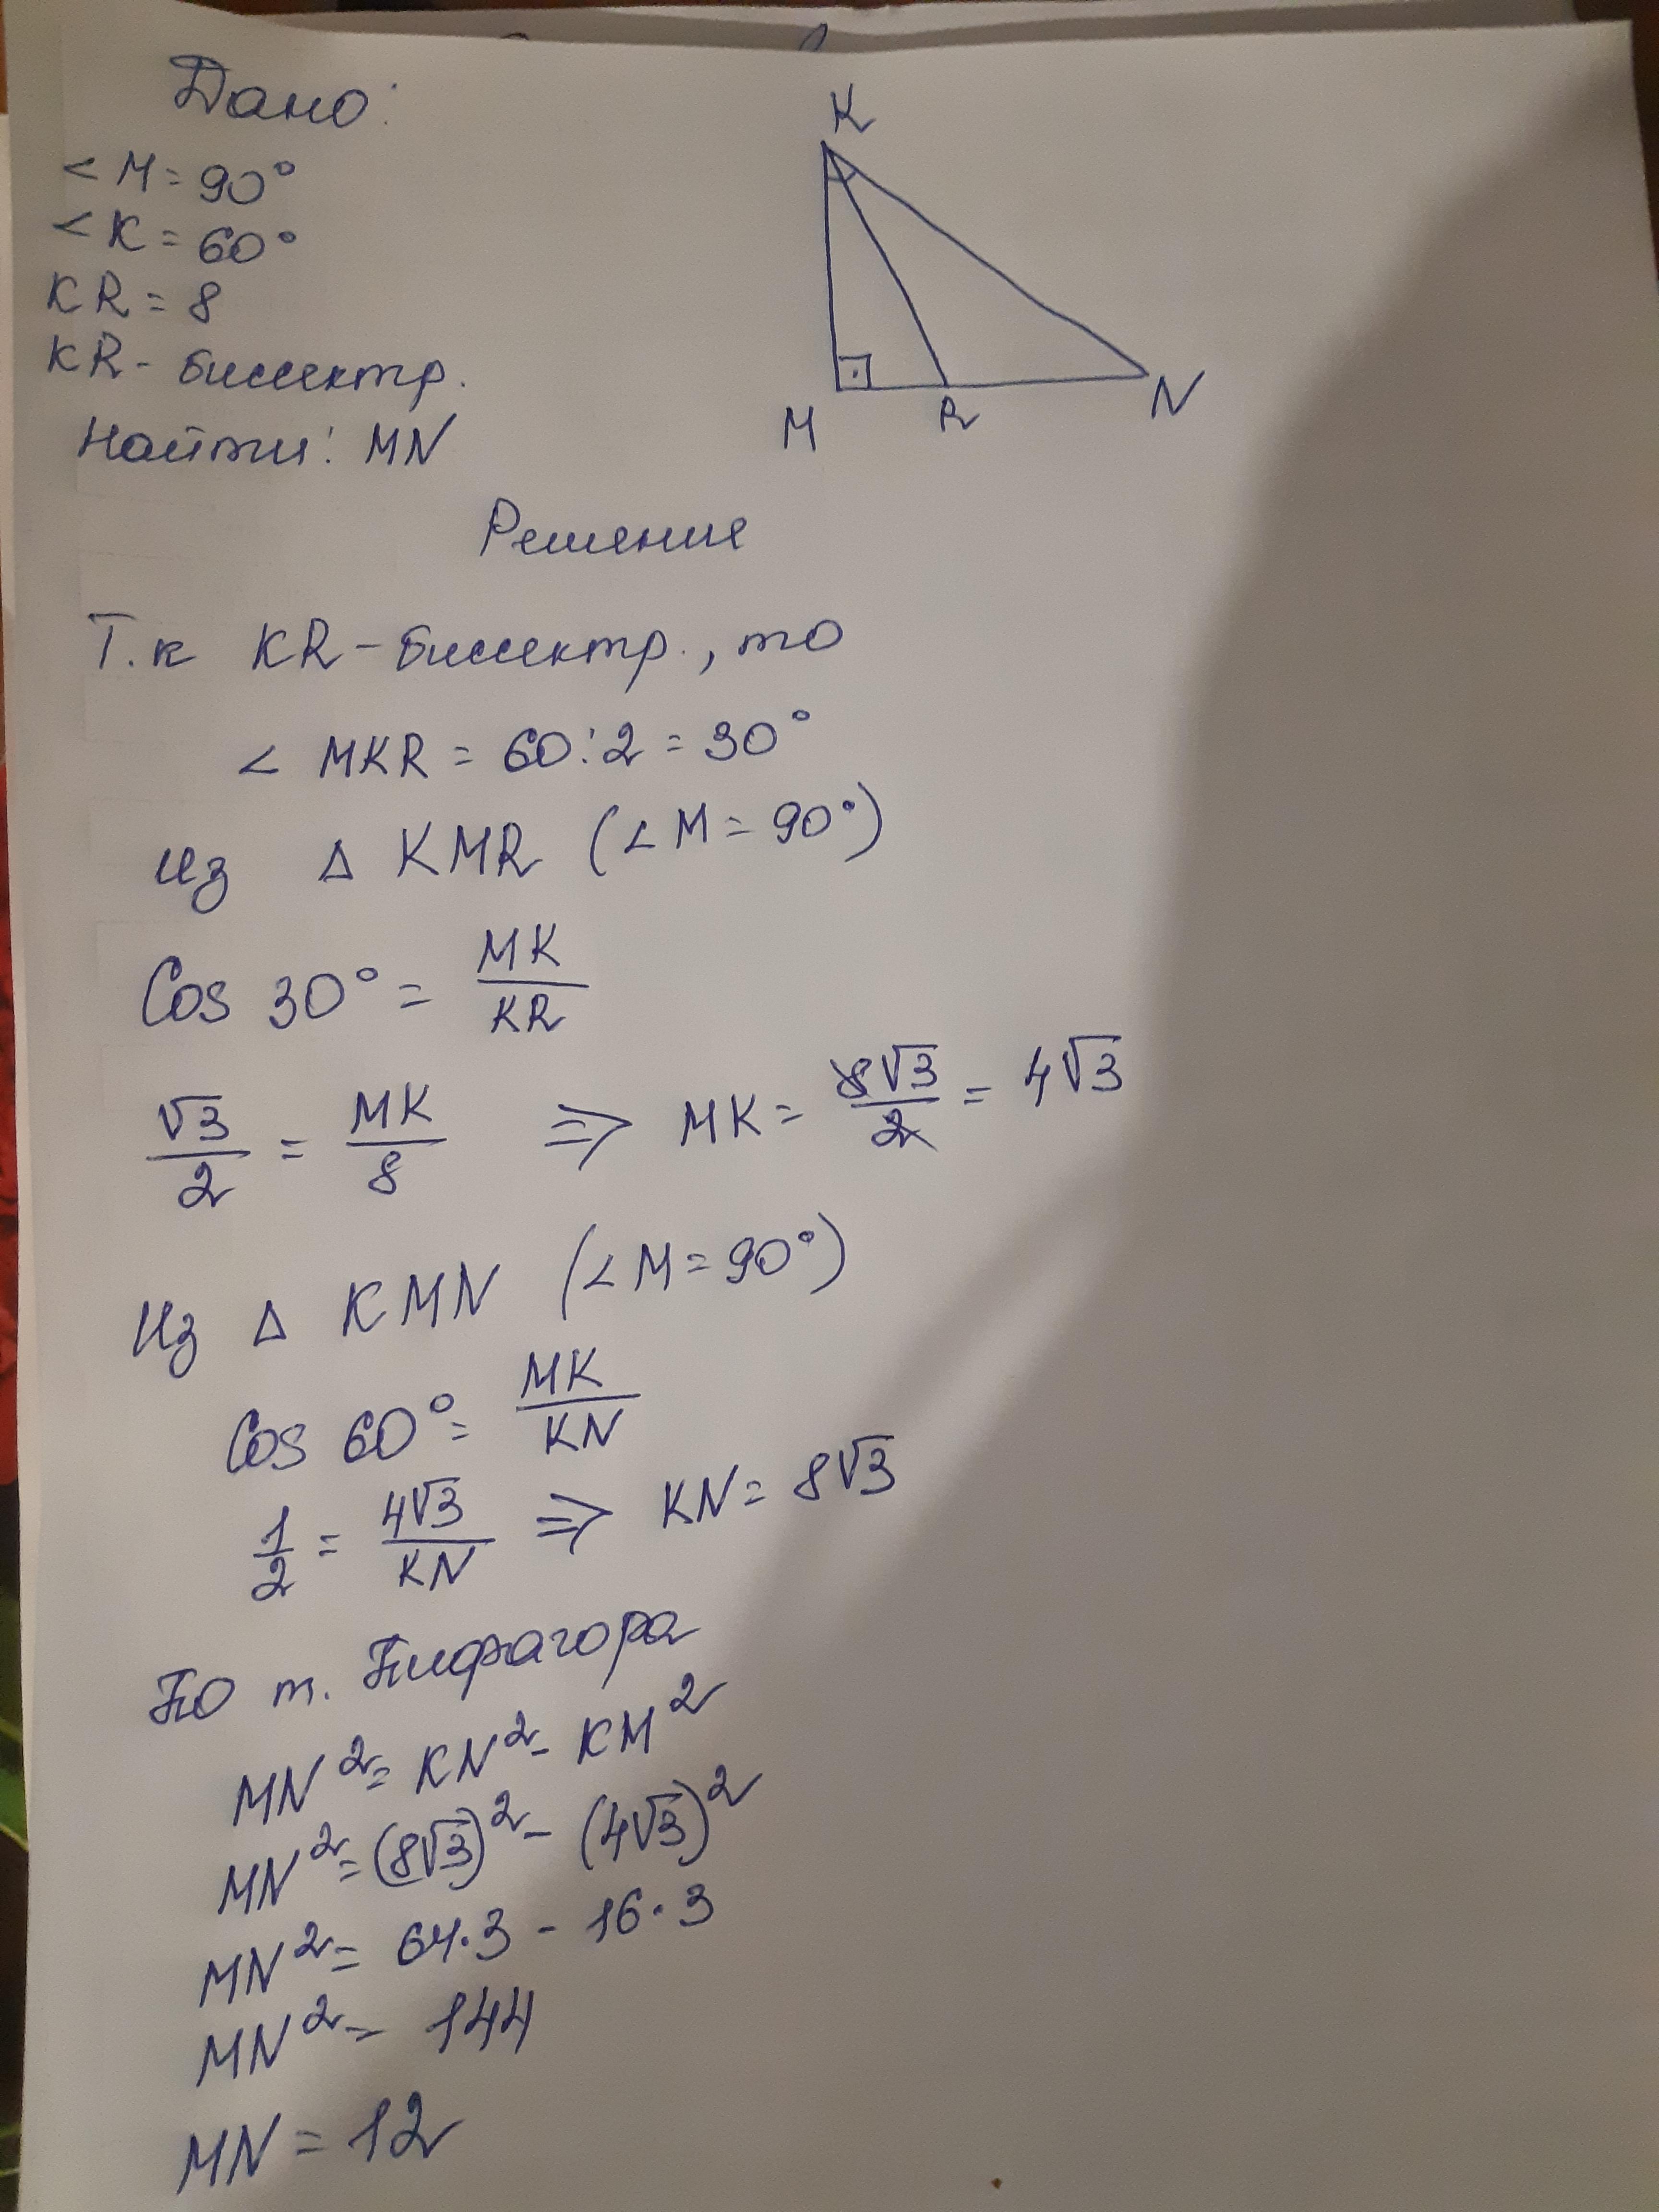 Дано:
K
< M = 90°
< K = 60°
KR = 8
KR - биссектр.
M R N
Найти: MN
Решение
Т.к KR - биссектр., то
< MKR = 60:2 = 30°
Из Δ KMR (∠M = 90°)
Cos 30° = MK/KR
√3/2 = MK/8 ⇒ MK = 8√3/2 = 4√3
Из Δ KMN (∠M = 90°)
Cos 60° = MK/KN
1/2 = 4√3/KN ⇒ KN = 8√3
По т. Пифагора
MN² = KN² - KM²
MN² = (8√3)² - (4√3)²
MN² = 64·3 - 16·3
MN² = 144
MN = 12